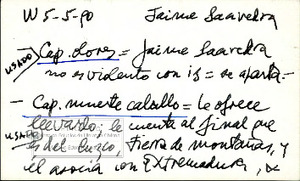 W 5-5-90 Jaime Saavedra
USADO
Cap. olores = Jaime Saavedra
no es violento con is = se aparta -
- Cap. muerte caballo = le ofrece
USADO
llevarlo; le cuenta al final que
es del Cuzco, tierra de montañas, y
él asocia con Extremadura,